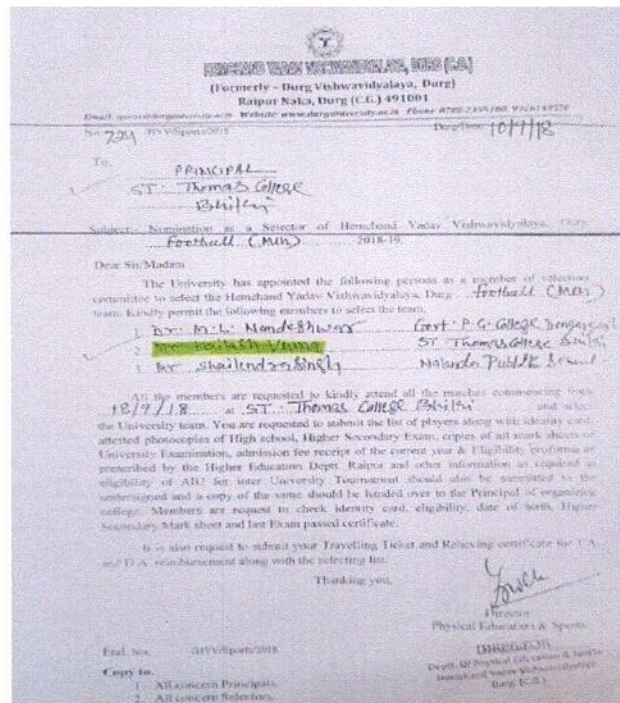 HEMCHAND YADAV VISHWAVIDYALAYA, DURG (C.G.)
(Formerly - Durg Vishwavidyalaya, Durg)
Raipur Naka, Durg (C.G.) 491001
Website: www.durguniversity.ac.in Phone
No. 224 /HYV/Sports/2018 10/9/18
To,
PRINCIPAL
ST. Thomas College
Bhilai
Subject:- Nomination as a Selector of Hemchand Yadav Vishwavidyalaya, Durg
Football (Men) 2018-19.
Dear Sir/Madam
The University has appointed the following persons as a member of selectors
committee to select the Hemchand Yadav Vishwavidyalaya, Durg - football (Men)
team. Kindly permit the following members to select the team.
1. Dr. M.L. Nandeshwar Govt. P.G. College
2. Mr. Kailash ST. Thomas College Bhilai
3. Mr. Shailendra Singh Nalanda Public School
All the members are requested to kindly attend all the matches commencing from
18/9/18 at ST. Thomas College Bhilai and select
the University team. You are requested to submit the list of players along with identity card,
attested photocopies of High school, Higher Secondary Exam, copies of all mark sheets of
University Examination, admission fee receipt of the current year & Eligibility proforma as
prescribed by the Higher Education Deptt. Raipur and other information as required as
eligibility of AIU for inter University Tournament should also be submitted to the
undersigned and a copy of the same should be handed over to the Principal of organizing
college. Members are request to check identity card, eligibility, date of birth, Higher
Secondary Mark sheet and last Exam passed certificate.
It is also request to submit your Travelling Ticket and Relieving certificate for T.A.
and D.A. reimbursement along with the selecting list.
Thanking you,
Director
Physical Education & Sports
End. No. /HYV/Sports/2018
DIRECTOR
Deptt. of Physical Education & Sports
Hemchand Yadav Vishwavidyalaya
Durg (C.G.)
Copy to.
1. All concern Principals.
2. All concern Selectors.